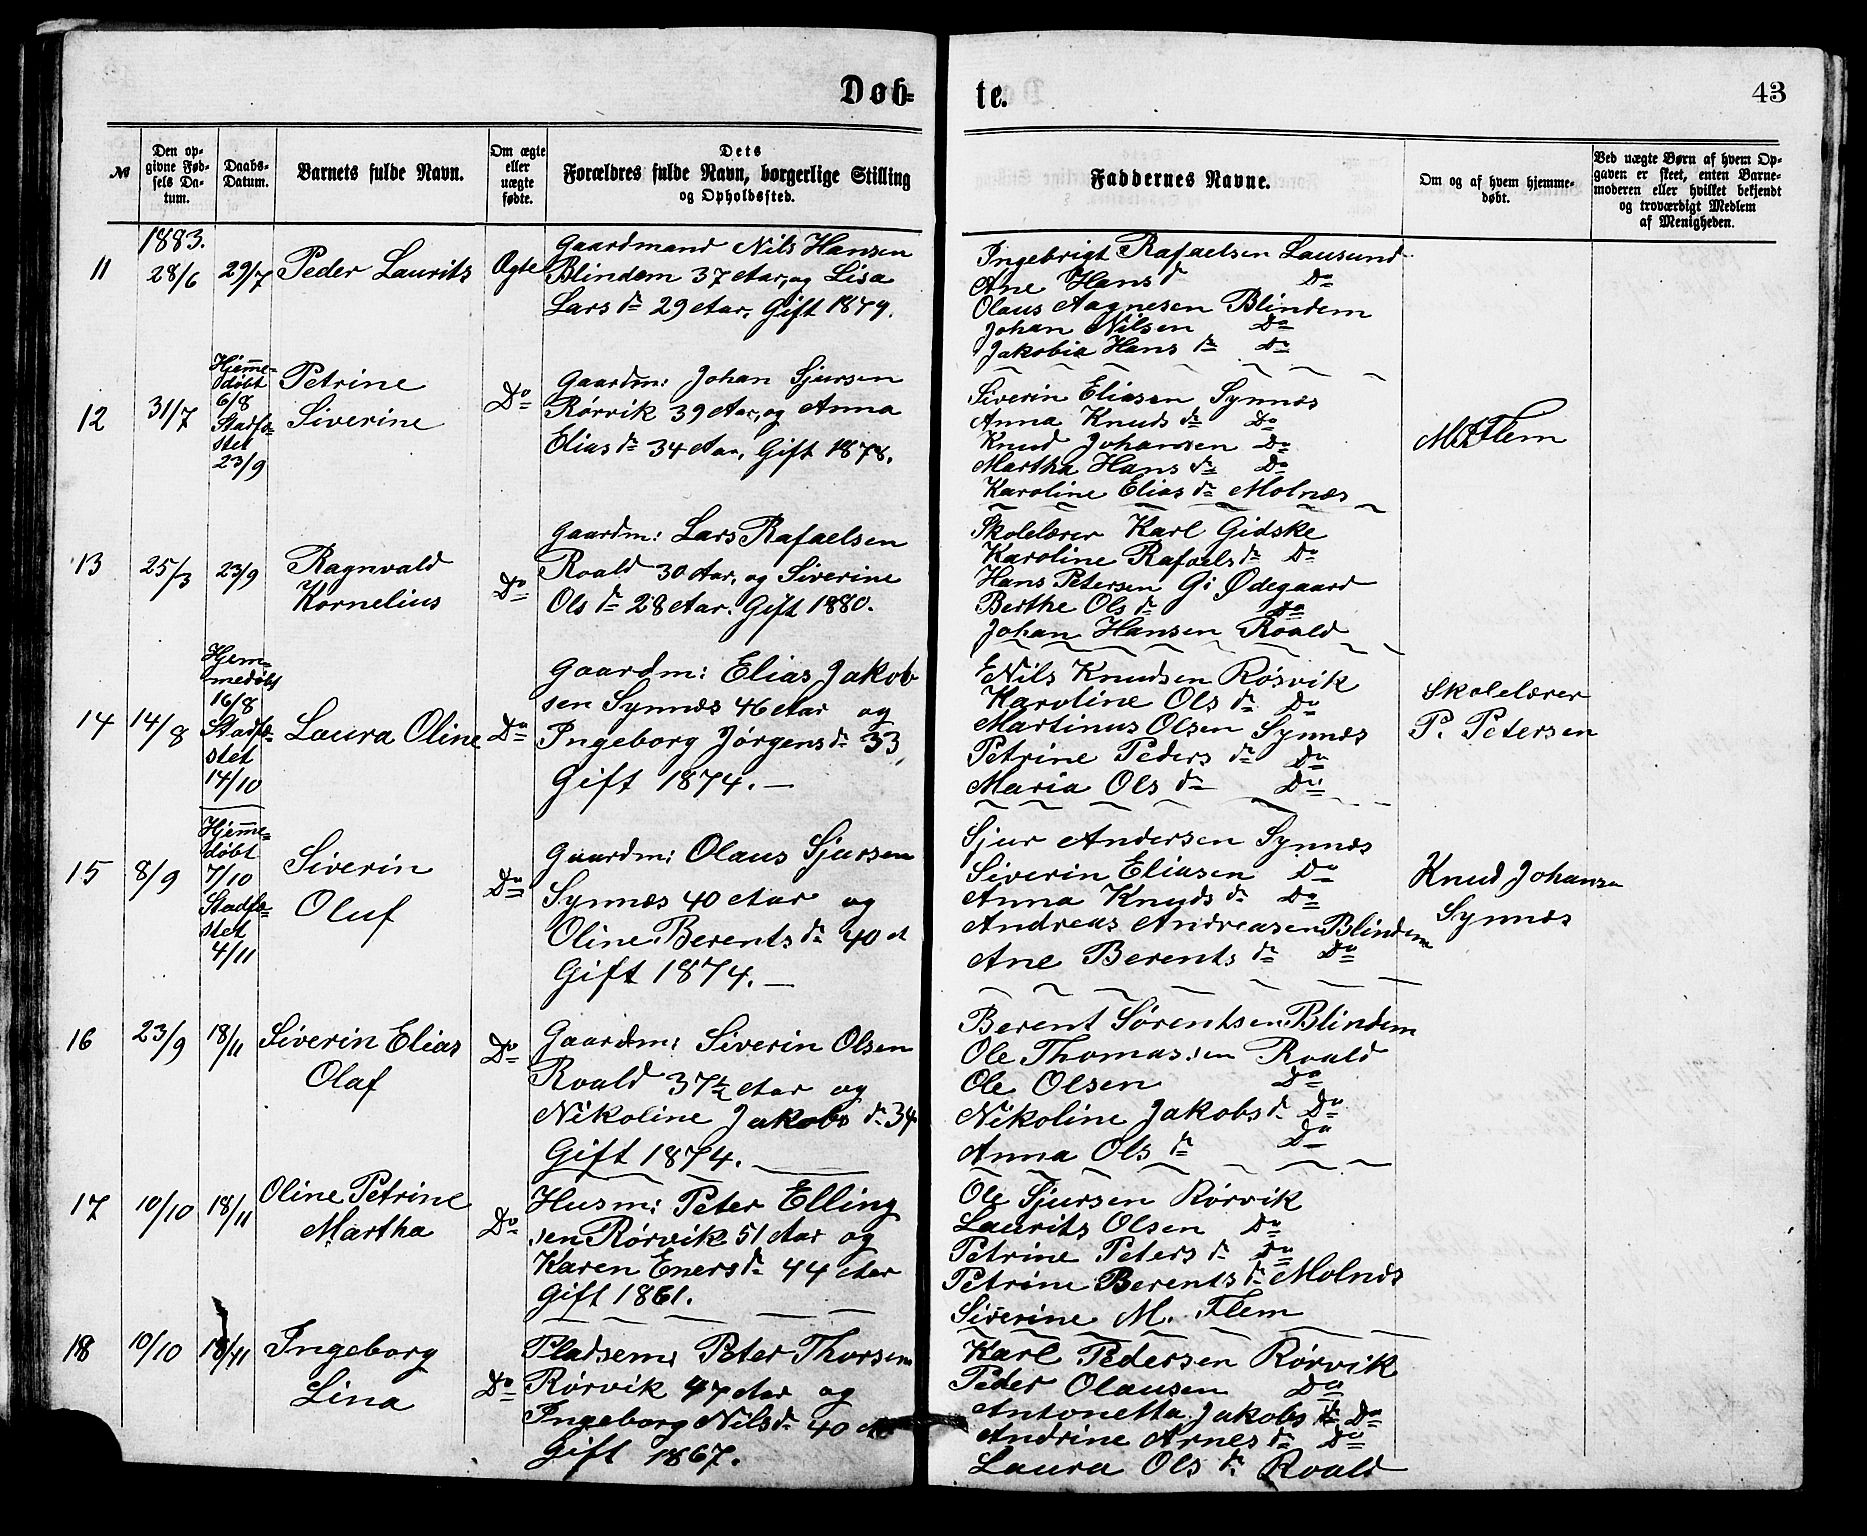 Døb-
te.
43
№
Den op-
givne Fød-
sels Da-
tum.
Daabs-
Datum.
Barnets fulde Navn.
Om ægte
eller
uægte
fødte.
Dets
Forældres fulde Navn, borgerlige Stilling
og Opholdssted.
Faddernes Navne.
Om og af hvem hjemme-
døbt.
Ved uægte Børn af hvem Op-
gaven er skeet, enten Barne-
moderen eller hvilket bekjendt
og troværdigt Medlem
af Menigheden.
1883.
11
28/6
29/7
Peder Laurits
Ægte
Gaardmand Nils Hansen
Blindem 37 Aar, og Lisa
Lars dr 29 Aar. Gift 1879.
Ingebrigt Rafaelsen Lausund
Ane Hans d Do
Olaus Aagnesen Blindem
Johan Nilsen Do
Jakobia Hans dr Do
12
31/7
Hjemme-
døbt
6/8
Stadfæ-
stet
23/9
Petrine
Siverine
Do
Gaardm: Johan Sjursen
Rørvik 39 Aar, og Anna
Elias dr 34 Aar, Gift 1878.
Siverin Eliasen Synnæs
Anna Knuds dr Do
Knud Johansen Do
Martha Hans dr Do
Karoline Elias dr Molnæs
Flem
13
25/3
23/9
Ragnvald
Kornelius
Do
Gaardm: Lars Rafaelsen
Roald 30 Aar, og Siverine
Ols dr 28 Aar. Gift 1880.
Skolelærer Karl Gidske
Karoline Rafaels dr Do
Hans Petersen G: Ødegaard
Berthe Ols dr Do
Johan Hansen Roald
14
14/8
Hjem-
medøbt
16/8
Stadfæ-
stet
14/10
Laura Oline
Do
Gaardm: Elias Jakob
sen Synnæs 46 Aar og
Ingeborg Jørgens dr 33,
Gift 1874. —
Nils Knudsen Røsvik
Karoline Ols dr Do
Martinus Olsen Synnæs
Petrine Peders dr Do
Maria Ols dr Do
Skolelærer
P. Petersen
15
8/9
Hjemme-
døbt
7/10
Stadfæ-
stet
4/11
Siverin
Oluf
Do
Gaardm: Olaus Sjursen
Synnæs 40 Aar og
Oline Berents dr 40 A
Gift 1874. —
Sjur Andersen Synnæs
Siverin Eliasen Do
Anna Knuds dr Do
Andreas Andreasen Blindem
Ane Berents dr Do
Knud Johansn
Synnæs
16
23/9
18/11
Siverin Elias
Olaf
Do
Gaardm: Siverin Olsen
Roald 37½ Aar og
Nikoline Jakobs dr 34
Gift 1874. —
Berent Sørentsen Blindem
Ole Thomassen Roald
Ole Olsen Do
Nikoline Jakobs dr Do
Anna Ols dr Do
17
10/10
18/11
Oline Petrine
Martha
Do
Husm: Peter Elling
sen Rørvik 51 Aar og
Karen Eners dr 44 Aar
Gift 1861.
Ole Sjursen Rørvik
Laurits Olsen Do
Petrine Peters dr Do
Petrine Berents dr Molnæs
Siverine M. Flem
18
10/10
18/11
Ingeborg
Lina
Do
Pladsem: Peter Thorsen
Rørvik 47 Aar og
Ingeborg Nils dr 40 A
Gift 1867.
Karl Pedersen Rørvik
Peder Olausen Do
Antonetta Jakobs dr Do
Andrine Arnes dr Do
Laura Ols dr Roald